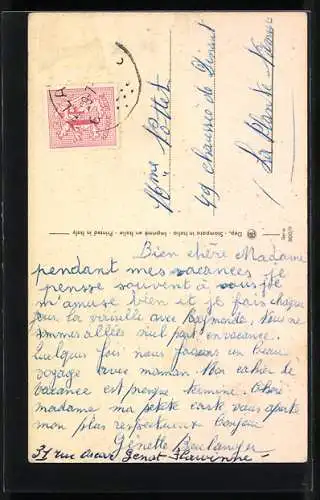 Mme Pottet
49 chaussée de Dinant
La Plante Namur
Dep. - Stampato in Italia - Imprimé en Italie - Printed in Italy
Serie
Bien chère Madame
pendant mes vacances je
pensse souvent à vous je
m'amuse bien et je fais chaque
jour la vaisselle avec Raymonde, Nous ne
sommes allées nul part en vacance.
Quelques fois nous faisons un beau
voyage avec maman Mon cahier de
vacance est presque terminé. Chère
madame ma petite carte vous aporte
mon plus respectueux bonjour
Ginette Boulanger
31 rue Oscar Genot Flawinne